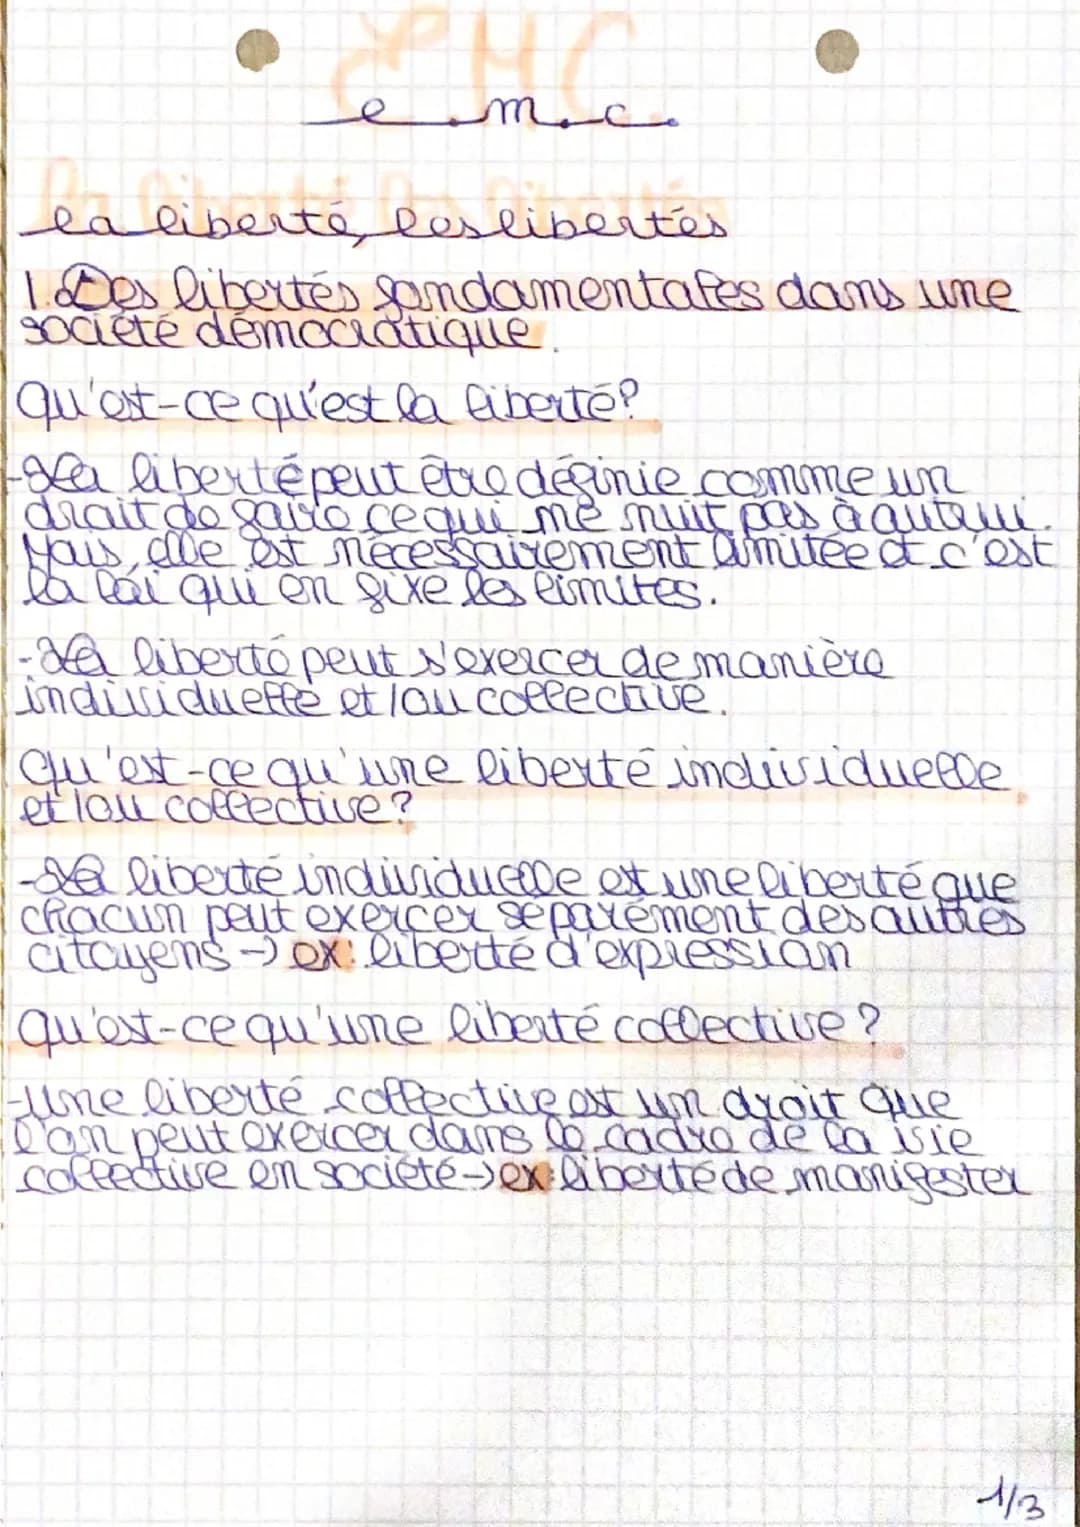 EMC
e.m.c.
la liberté, les libertés
1. Des libertés fondamentales dans une
société démocratique.
Qu'est-ce qu'est la liberté?
-La liberté peut être définie comme un
droit de faire ce qui me nuit pas à autrui.
Mais, elle est nécessairement limitée et c'est
la loi qui en fixe les limites.
-La liberté peut s'exercer de manière
individuelle et/ou collective.
Qu'est-ce qu'une liberté individuelle
et/ou collective?
-La liberté individuelle est une liberté que
chacun peut exercer séparément des autres
citoyens → ex: liberté d'expression
Qu'est-ce qu'une liberté collective?
-Une liberté collective est un droit que
l'on peut exercer dans le cadre de la vie
collective en société → ex: liberté de manifester
1/3